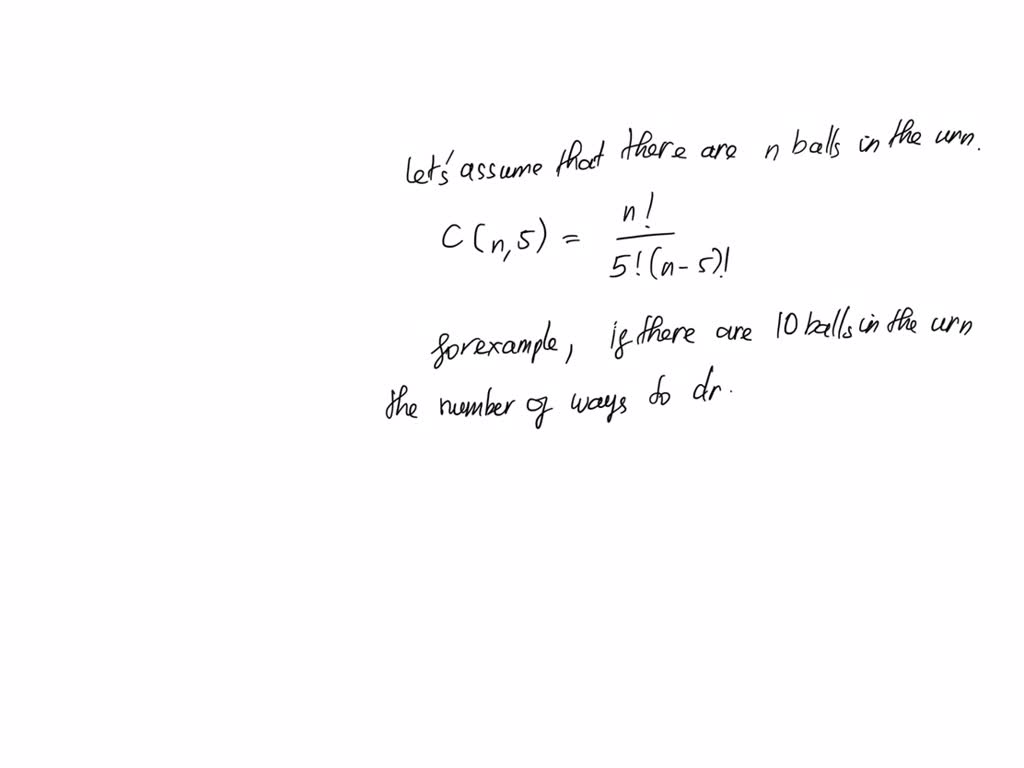 let's assume that there are n balls in the urn.
C(n,5) = n! / 5!(n-5)!
for example, if there are 10 balls in the urn
the number of ways to dr.